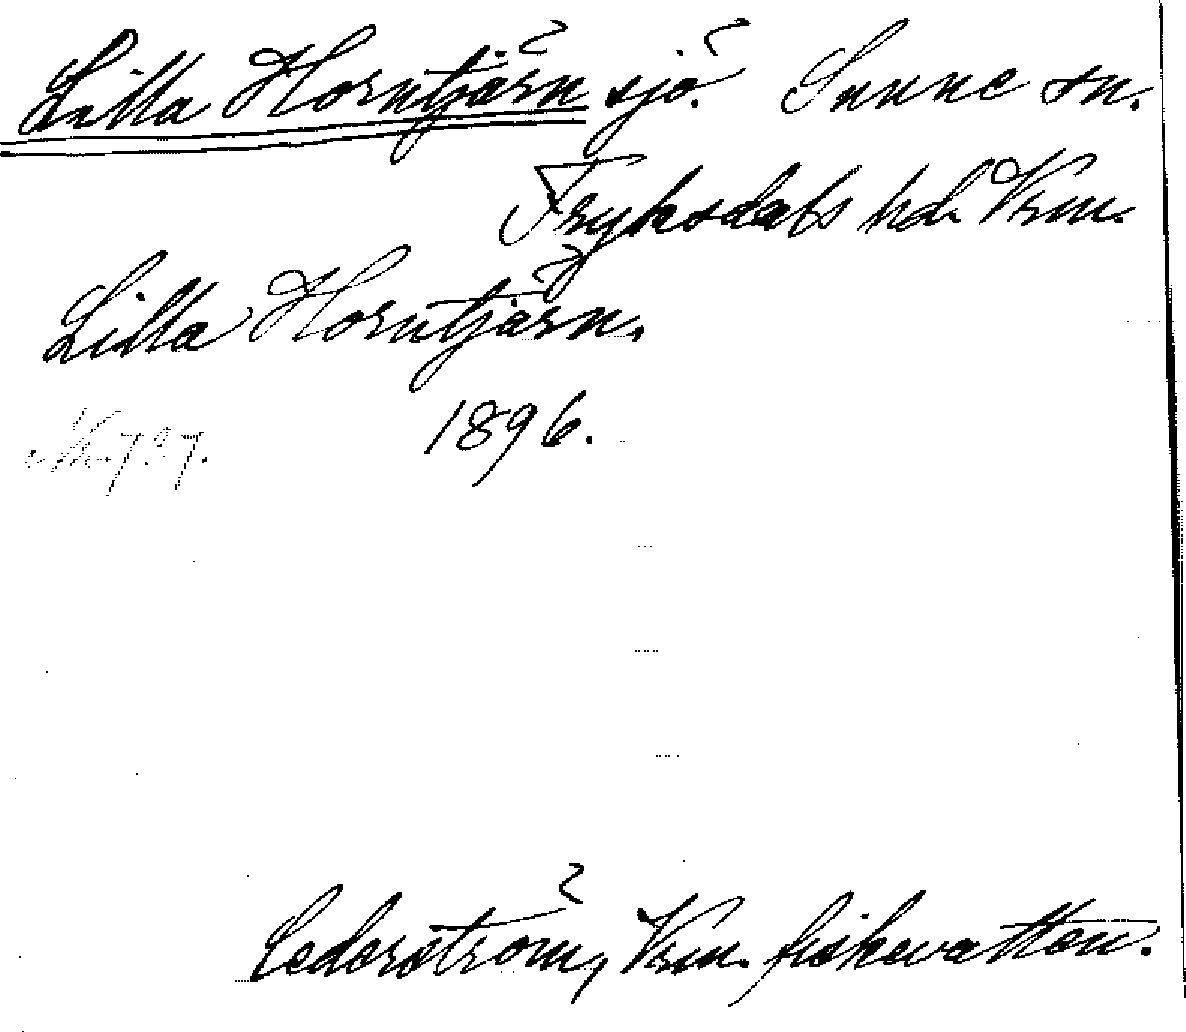 Lilla Horntjärn sjö. Sunne sn.
Fryksdals hd. Vrm.
Lilla Horntjärn.
1896.
Cederström, Vrm. fiskevatten.